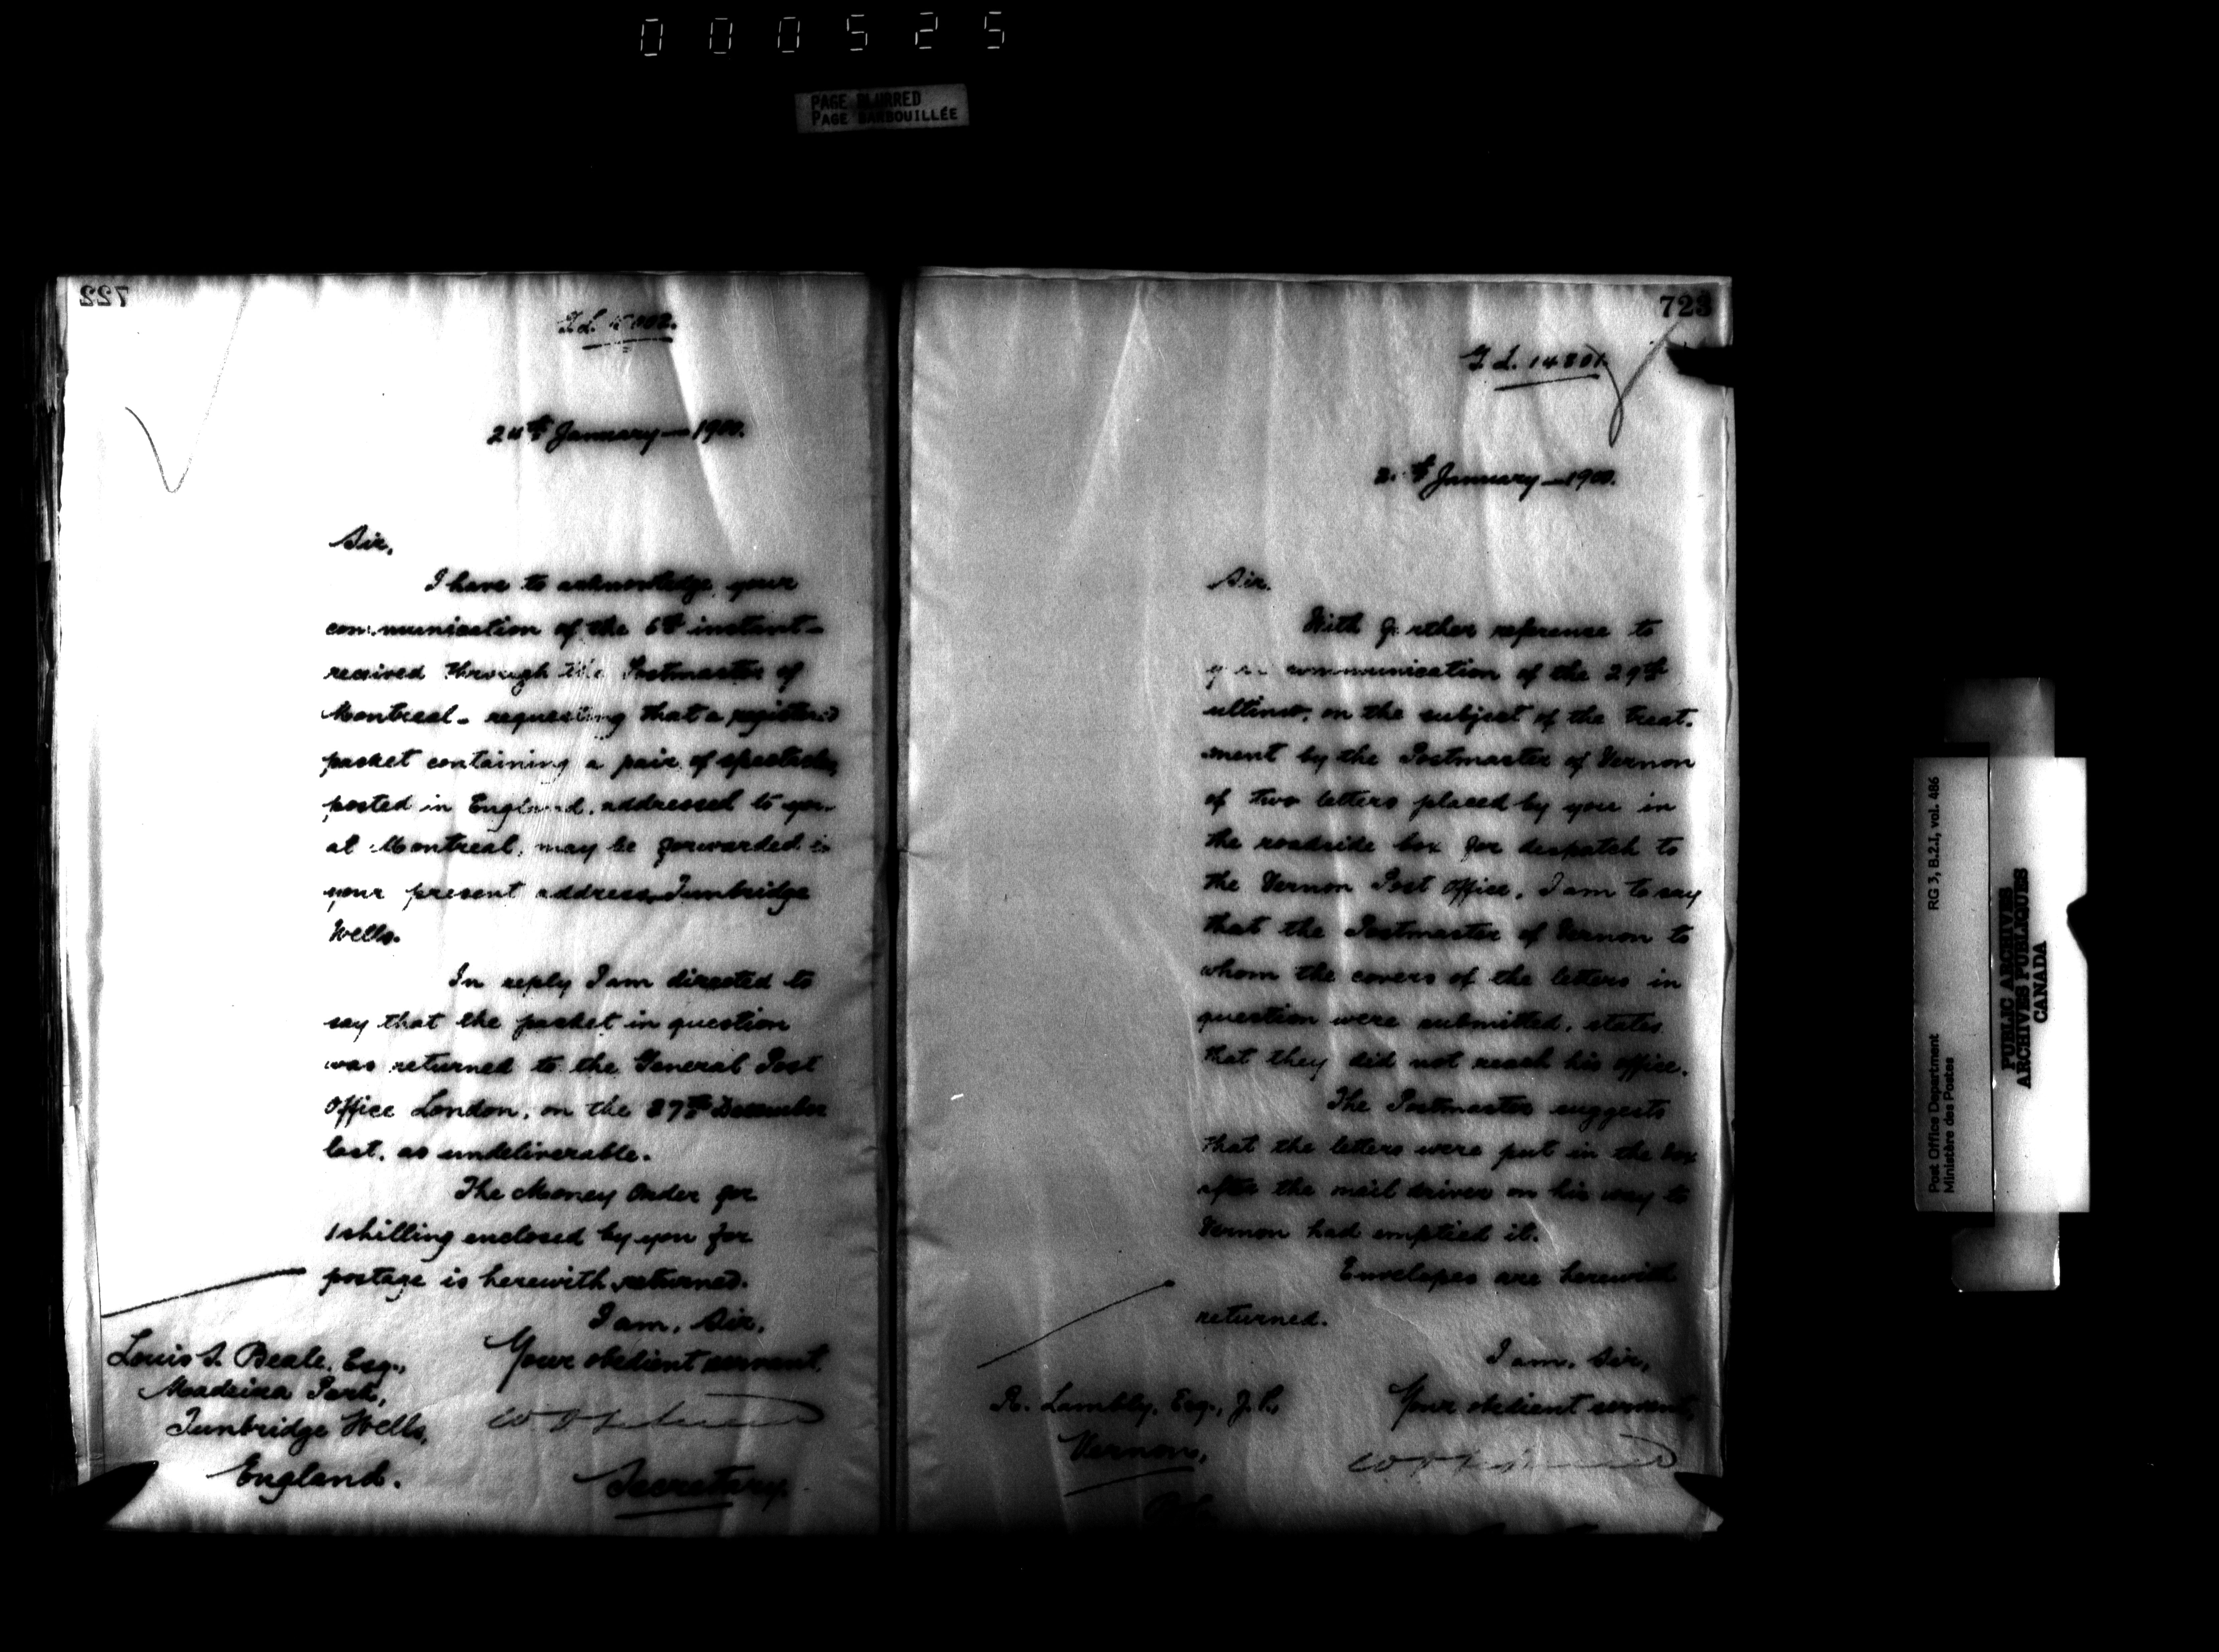 000525
PAGE BLURRED
PAGE BARBOUILLÉE
722
24th January - 1900.
Sir,
I have to acknowledge your
communication of the 6th instant -
received through the Postmaster of
Montreal - requesting that a registered
packet containing a pair of spectacles,
posted in England, addressed to you
at Montreal, may be forwarded to
your present address, Tunbridge
Wells.
In reply I am directed to
say that the packet in question
was returned to the General Post
Office London, on the 27th December
last, as undeliverable.
The Money Order for
1 shilling enclosed by you for
postage is herewith returned.
I am, Sir,
Your obedient servant,
Secretary.
Louis S. Beale, Esq.,
Madeira Park,
Tunbridge Wells,
England.
723
14801
January - 1900.
Sir.
With further reference to
your communication of the 29th
ultimo, on the subject of the treat-
ment by the Postmaster of Vernon
of two letters placed by you in
the roadside box for despatch to
the Vernon Post Office, I am to say
that the Postmaster of Vernon to
whom the covers of the letters in
question were submitted, states
that they did not reach his office.
The Postmaster suggests
that the letters were put in the box
after the mail driver on his way to
Vernon had emptied it.
Envelopes are herewith
returned.
I am, Sir,
Your obedient servant,
R. Lambly, Esq., J.P.,
Vernon,
Post Office Department
Ministère des Postes
RG 3, B.2.I, vol. 486
PUBLIC ARCHIVES
ARCHIVES PUBLIQUES
CANADA